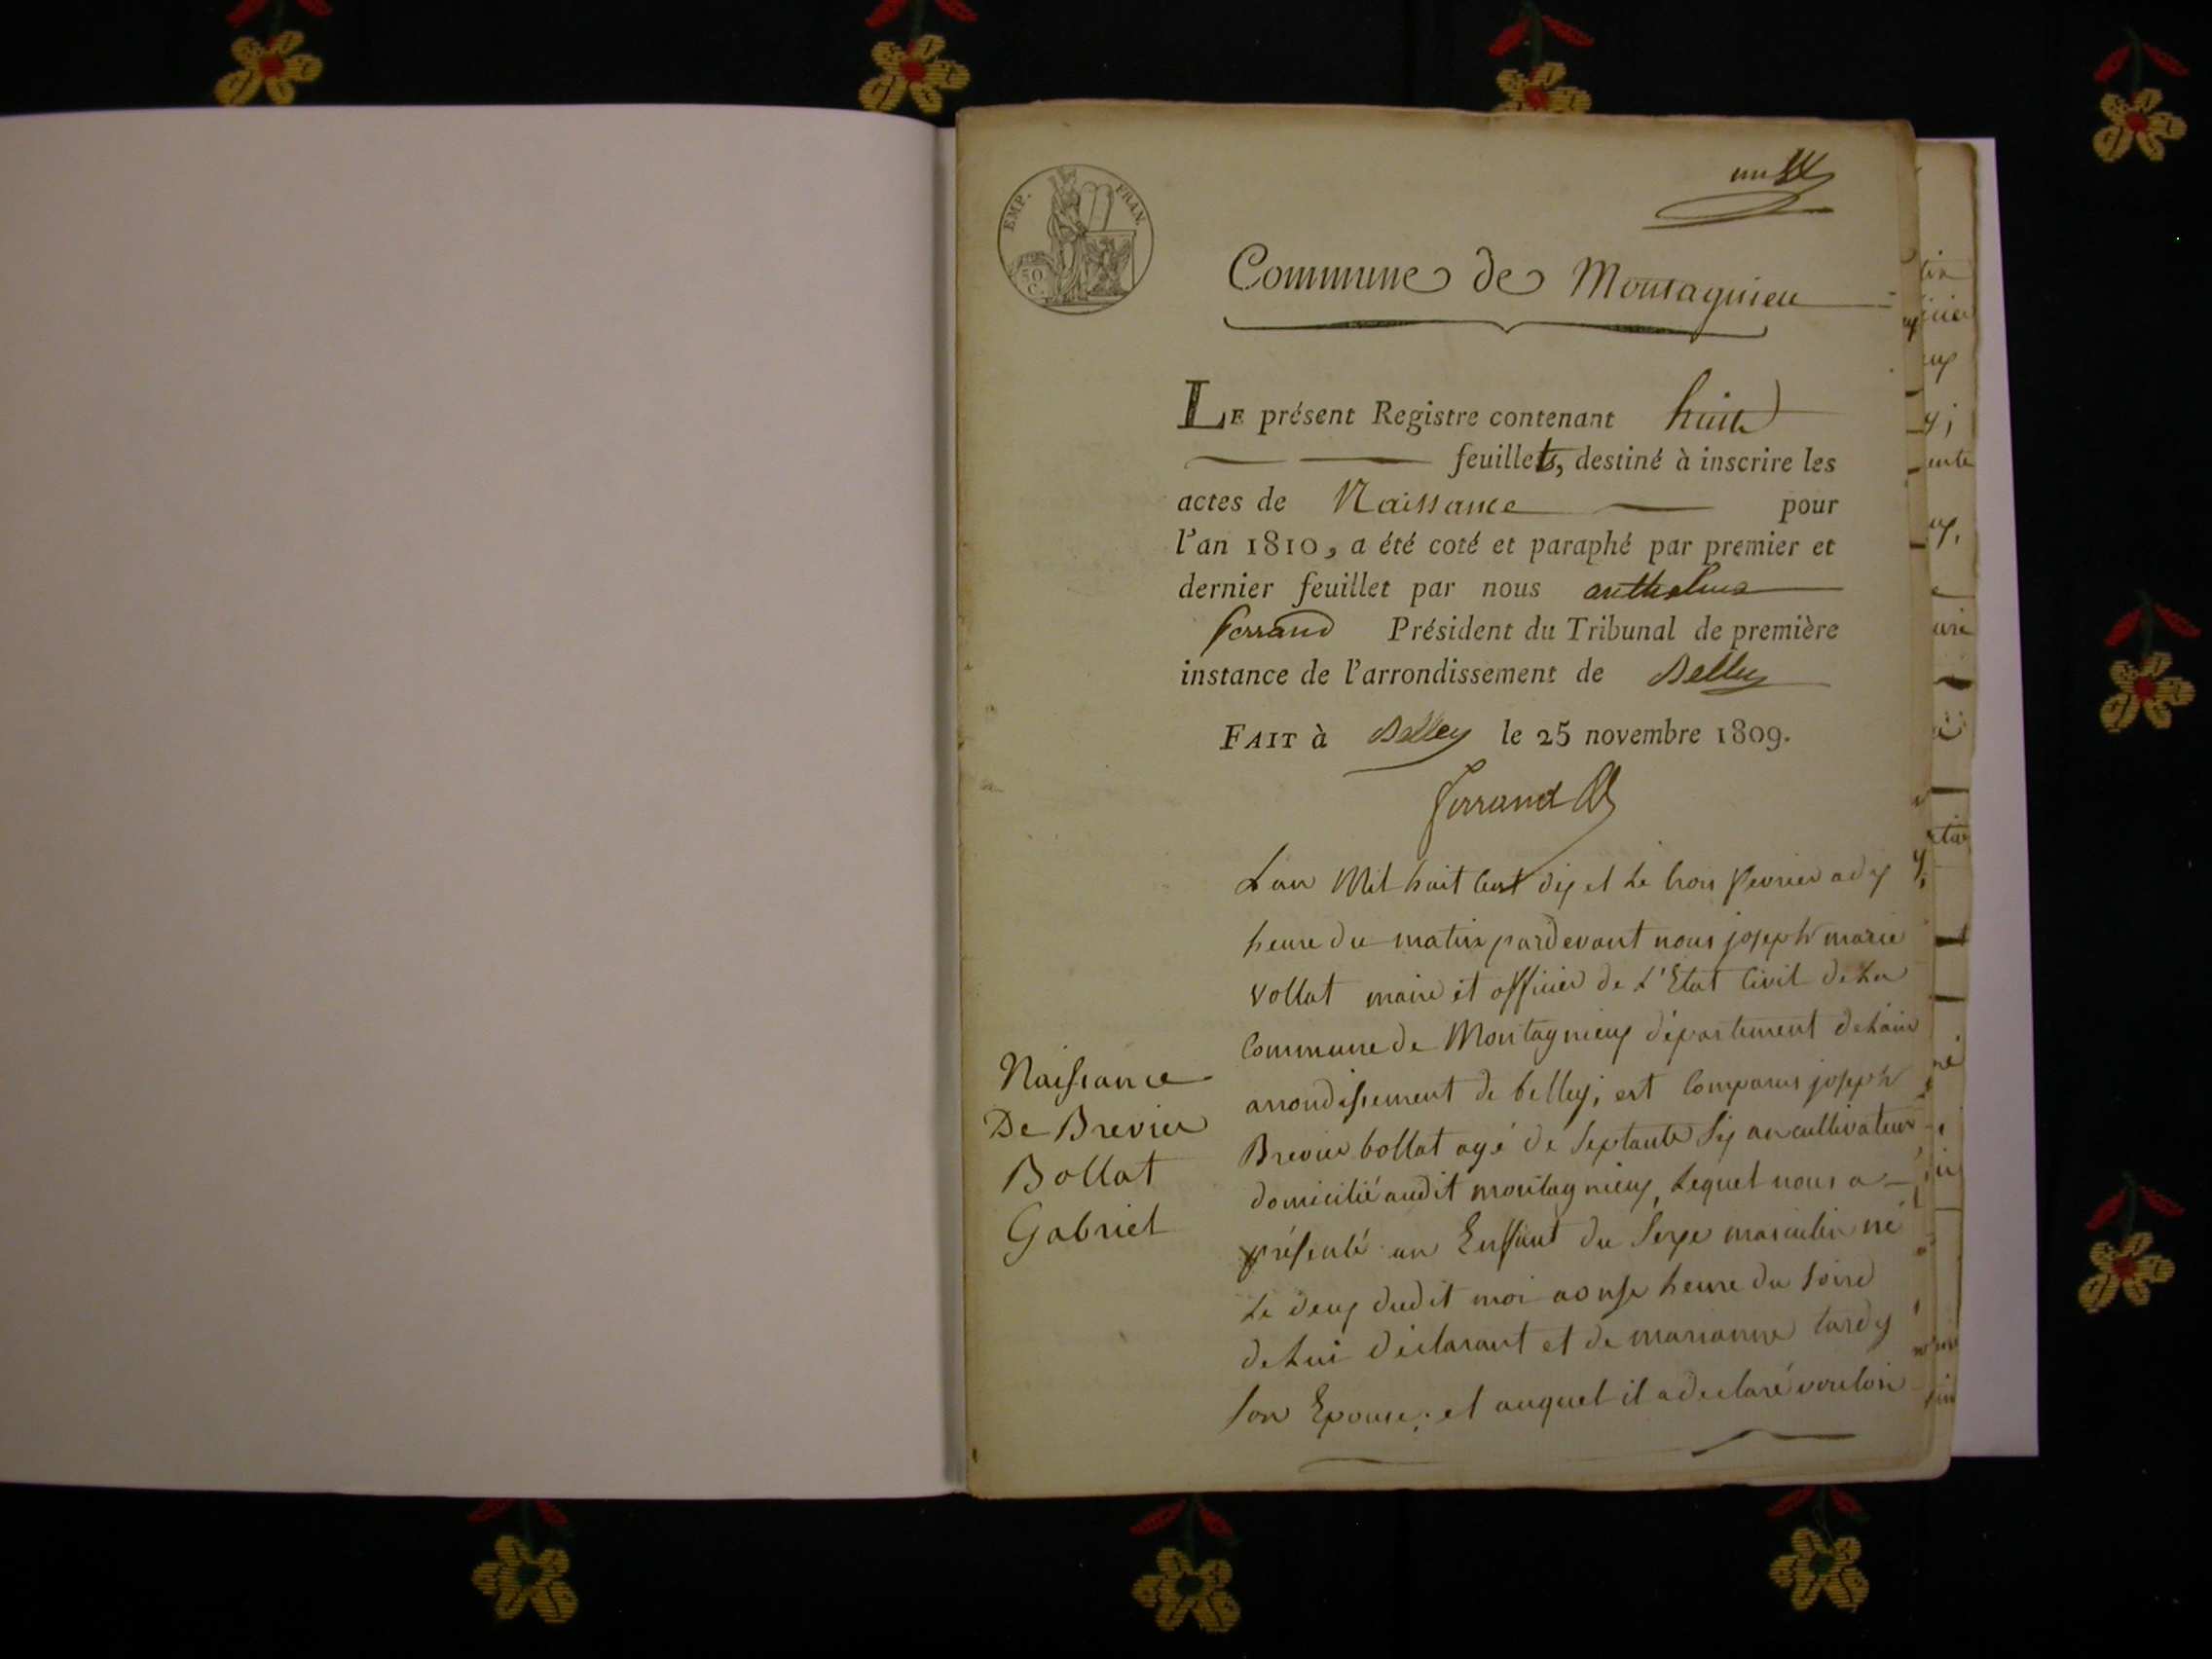 un
EMP. FRAN.
50
C.
Commune de Montagnieu
LE présent Registre contenant huit
feuillets, destiné à inscrire les
actes de Naissance pour
l'an 1810, a été coté et paraphé par premier et
dernier feuillet par nous anthelme
ferrand Président du Tribunal de première
instance de l'arrondissement de Belley
FAIT à Belley le 25 novembre 1809.
ferrand
L'an Mil huit Cent dix et Le trois fevrier a dix
heure du matin pardevant nous joseph marie
Vollat maire et officier de L'Etat Civil de La
Commune de Montagnieux département de Lain
arrondissement de belley, est Comparus joseph
Brevier bollat agé de Septante Six an cultivateur
domicilié audit montagnieux, Lequel nous a
présenté un Enffant du Sexe masculin né
Le deux dudit moi a onse heure du Soire
de Lui déclarant et de marianne tardy
Son Epouse; et auquel il a declaré vouloir
Naissance
De Brevier
Bollat
Gabriel